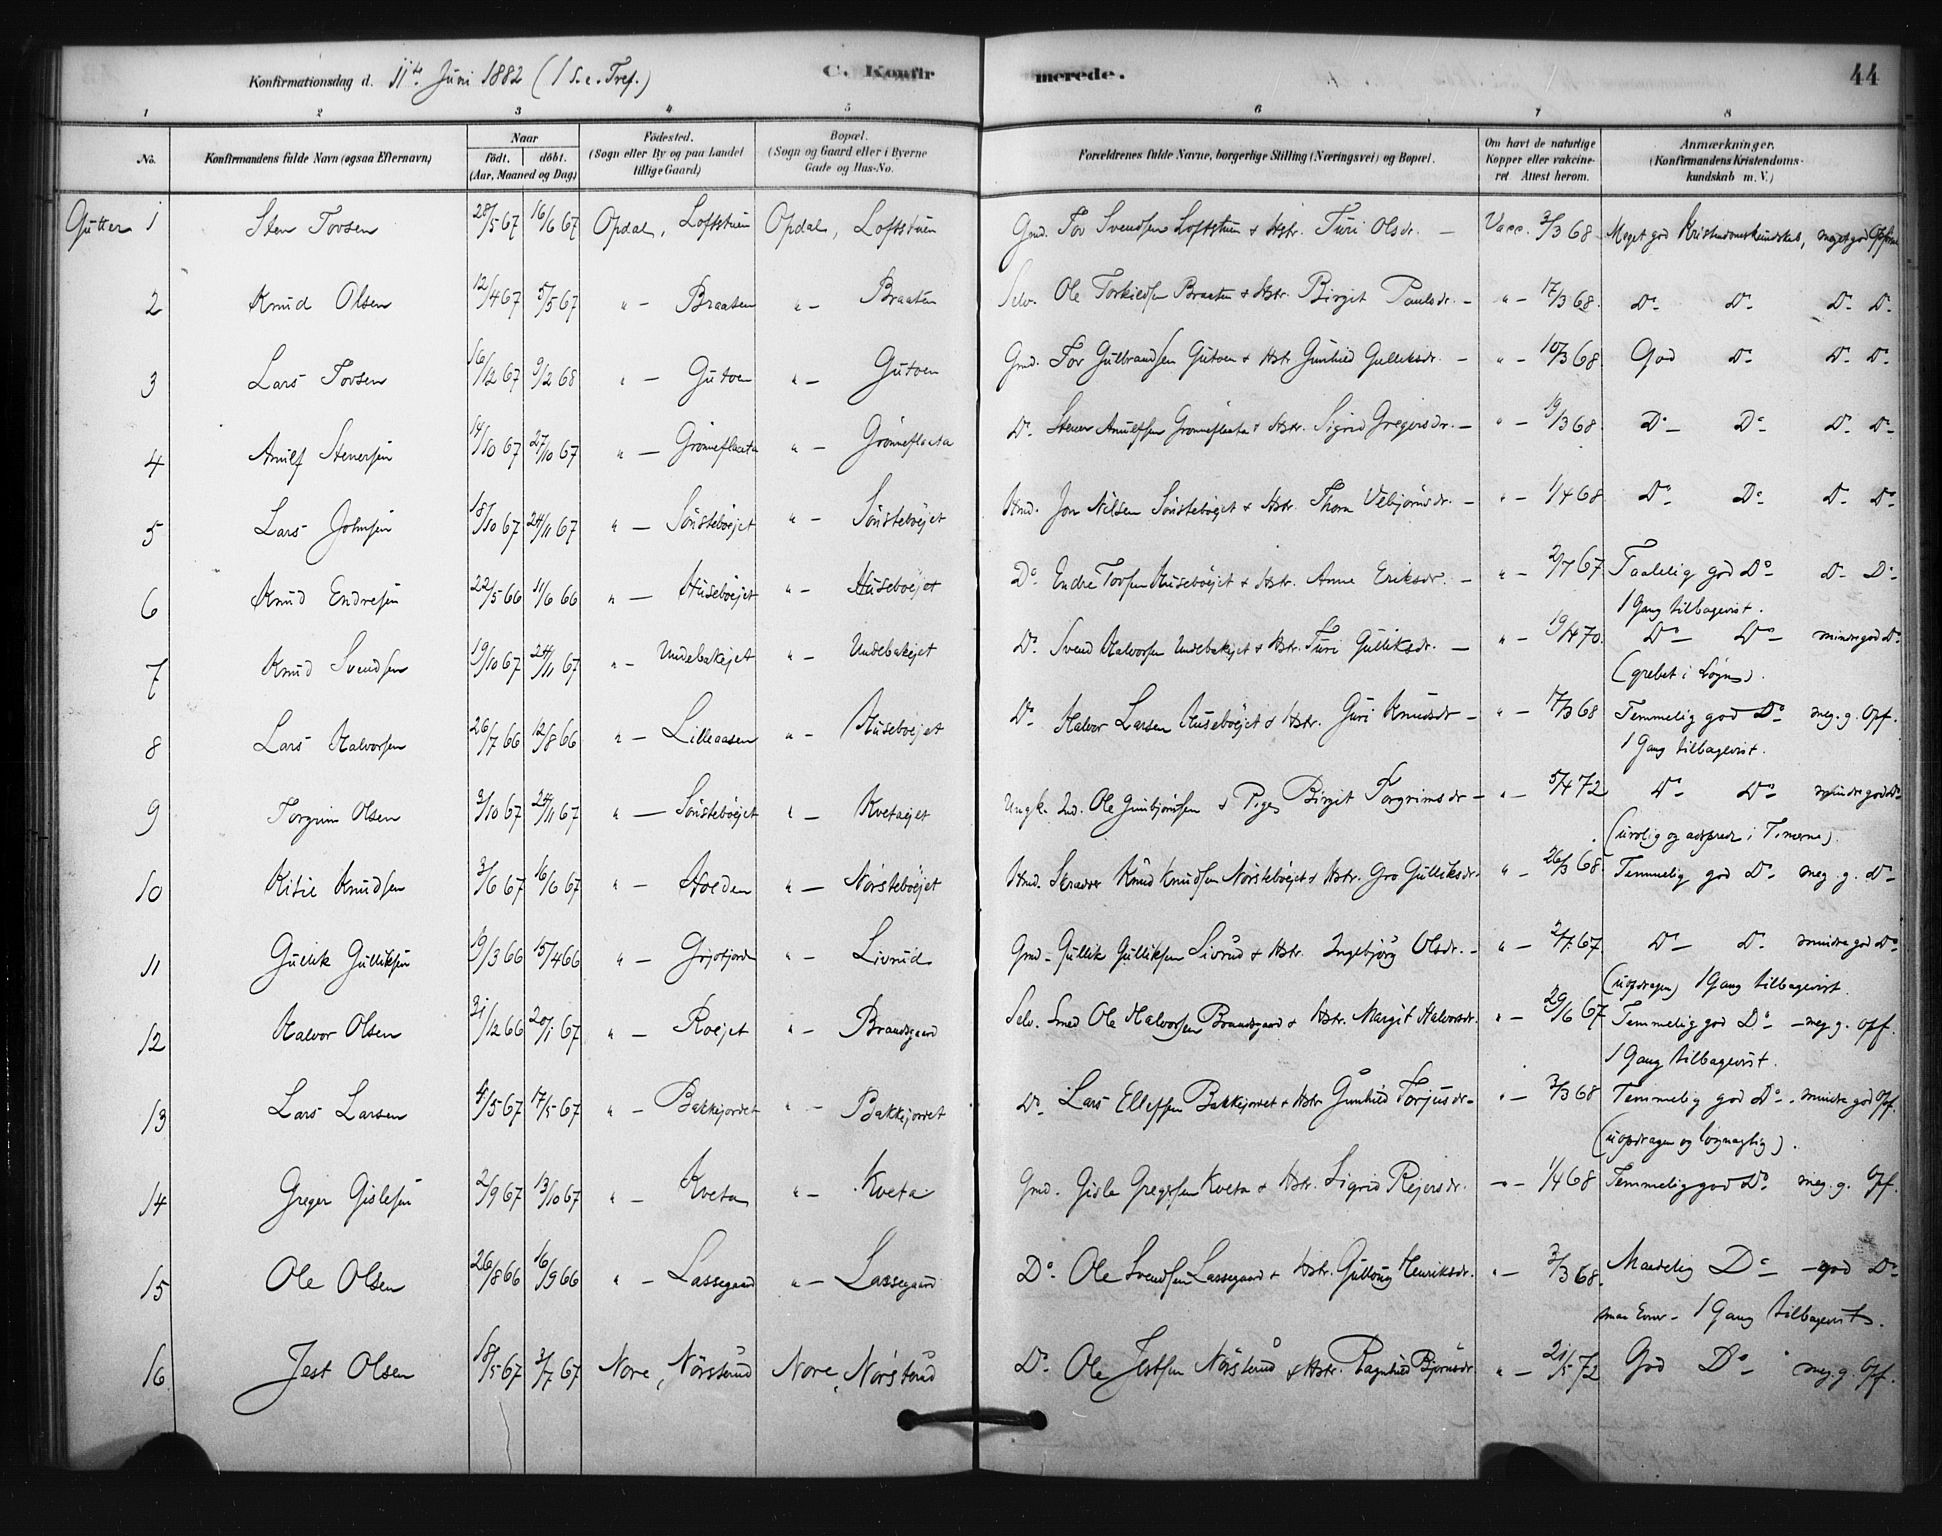 Konfirmationsdag d. 11te Juni 1882 (1 S. e. Tref.) C. Konfirmerede. 44
1 2 3 4 5 6 7 8
No. Konfirmandens fulde Navn (ogsaa Efternavn) Naar født. døbt. (Aar, Maaned og Dag) Fødested. (Sogn eller By og paa Landet tillige Gaard) Bopæl. (Sogn og Gaard eller i Byerne Gade og Hus-No. Forældrenes fulde Navne, borgerlige Stilling (Næringsvei) og Bopæl. Om havt de naturlige Kopper eller vakcineret Attest herom. Anmærkninger. (Konfirmandens Kristendomskundskab m. V.)
Gutter 1 Sten Tovsen 28/5 67 16/6 67 Opdal, Loftstuen Opdal, Loftstuen Gmd. Tov Svendsen Loftstuen & Hstr. Turi Olsdr. — Vacc. 3/3 68 Meget god Kristendomskundskab, meget god Opførsel
2 Knud Olsen 12/4 67 5/5 67 " — Braaten " — Braaten Selv. Ole Torkildsen Braaten & Hstr. Birgit Paulsdr. — " — 17/3 68. Do Do Do Do
3 Lars Tovsen 16/12 67 9/2 68 " — Gutoen " — Gutoen Gmd. Tov Gulbrandsen Gutoen & Hstr Gunhild Gulliksdr. — " — 10/3 68. God Do Do Do
4 Arnulf Stenersen 14/10 67 27/10 67 " — Grønneflaata " — Grønneflaata Do. Stener Arnulfsen Grønneflaata & Hstr. Sigrid Gregersdr. — " — 19/3 68. Do Do Do Do
5 Lars Johnsen 18/10 67 24/11 67 " — Sønstebøejet " — Sønstebøejet Hmd. Jon Nilsen Sønstebøejet & Hstr. Thora Vebjørnsdr. — " — 1/4 68 Do Do Do Do
6 Knud Endresen 22/5 66 11/6 66 " — Husebøejet " — Husebøejet Do. Endre Tovsen Husebøejet & Hstr. Anne Eriksdr. — " — 2/7 67 Taalelig god Do Do Do
1 Gang tilbagevist.
7 Knud Svendsen 19/10 67 24/11 67 " — Undebakejet " — Undebakejet Do. Svend Halvorsen Undebakejet & Hstr. Turi Gulliksdr. — " — 19/4 70. Do Do mindre god Do
(grebet i Løgn).
8 Lars Halvorsen 26/7 66 12/8 66 " — Lilleaasen " — Husebøejet Do. Halvor Larsen Husebøejet & Hstr. Guri Knudsdr — " — 17/3 68 Temmelig god Do meg. g. Opf.
1 Gang tilbagevist.
9 Torgrim Olsen 9/10 67 24/11 67 " — Sønstebøejet " — Kvetaejet Ungk. Ind. Ole Gunbjørnsen & Pige Birgit Torgrimsdr — " — 5/4 72 Do Do mindre god Do
(urolig og adspredt i Timerne).
10 Kitil Knudsen 3/6 67 16/6 67 " — Hoeden " — Nørstebøejet Hmd. Skræder Knud Knudsen Nørstebøejet & Hstr. Gro Gulliksdr. " — 26/3 68 Temmelig god Do meg. g. Do
11 Gullik Gulliksen 19/3 66 15/4 66 " — Grjotjorde " — Livrud Gmd. Gullik Gulliksen Livrud & Hstr. Ingebjørg Olsdr. " — 2/7 67. Do Do mindre god Do
(uopdragen) 1 Gang tilbagevist.
12 Halvor Olsen 31/12 66 20/1 67 " — Roejet " — Brandsgaard Selv. Smed Ole Halvorsen Brandsgaard & Hstr. Margit Halvorsdr. " — 29/6 67 Temmelig god Do meg g. Opf.
1 Gang tilbagevist.
13 Lars Larsen 4/5 67 17/5 67 " — Bakkejordet " — Bakkejordet Do. Lars Ellefsen Bakkejordet & Hstr Gunhild Torjusdr. " — 3/3 68 Temmelig god Do. mindre god Opf.
(uopdragen og løgnagtig).
14 Greger Gislesen 2/9 67 13/10 67 " — Kveta " — Kveta Gmd. Gisle Gregersen Kveta & Hstr. Sigrid Rejersdr. " — 1/4 68 Temmelig god Do. meg. g. Opf.
15 Ole Olsen 26/8 66 16/9 66 " — Lassegaard " — Lassegaard Do. Ole Svendsen Lassegaard & Hstr. Gullaug Henriksdr. " — 3/3 68. Maadelig Do god Do
smaa Evner. 1 Gang tilbagevist.
16 Jest Olsen 18/5 67 3/7 67 Nore, Nørsterud Nore, Nørsterud Do. Ole Jestsen Nørsterud & Hstr. Ragnhild Bjørnsdr. " — 21/5 72 God Do meg. g. Opf.